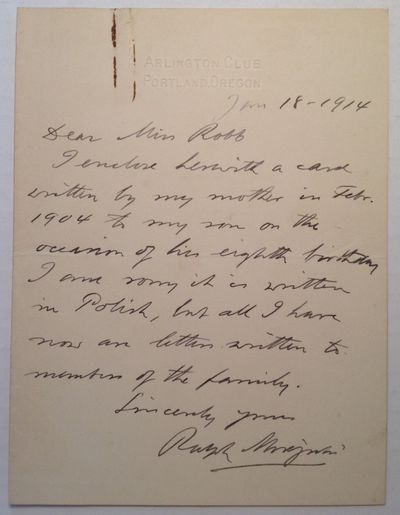 ARLINGTON CLUB
PORTLAND, OREGON
Jan 18-1914
Dear Miss Robb
I enclose herewith a card
written by my mother in Febr.
1904 to my son on the
occasion of his eighth birthday
I am sorry it is written
in Polish, but all I have
now are letters written to
members of the family.
Sincerely yours
Ralph Modjeski